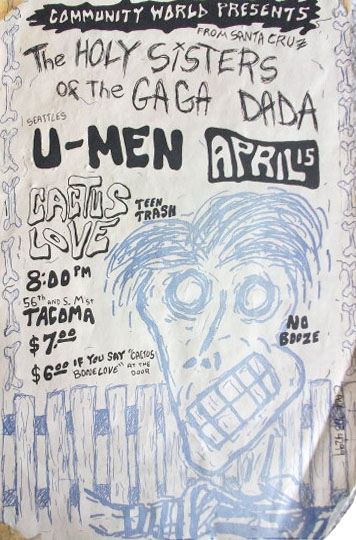 COMMUNITY WORLD PRESENTS
FROM SANTA CRUZ
The HOLY SiSTERS
of THE GAGA DADA
SEATTLES
U-MEN
APRIL 15
CACTUS
LOVE
TEEN
TRASH
8:00 PM
56TH AND S. M ST
TACOMA
$7.00
$6.00 IF YOU SAY "CACTUS
BONE LOVE" AT THE
DOOR
NO
BOOZE